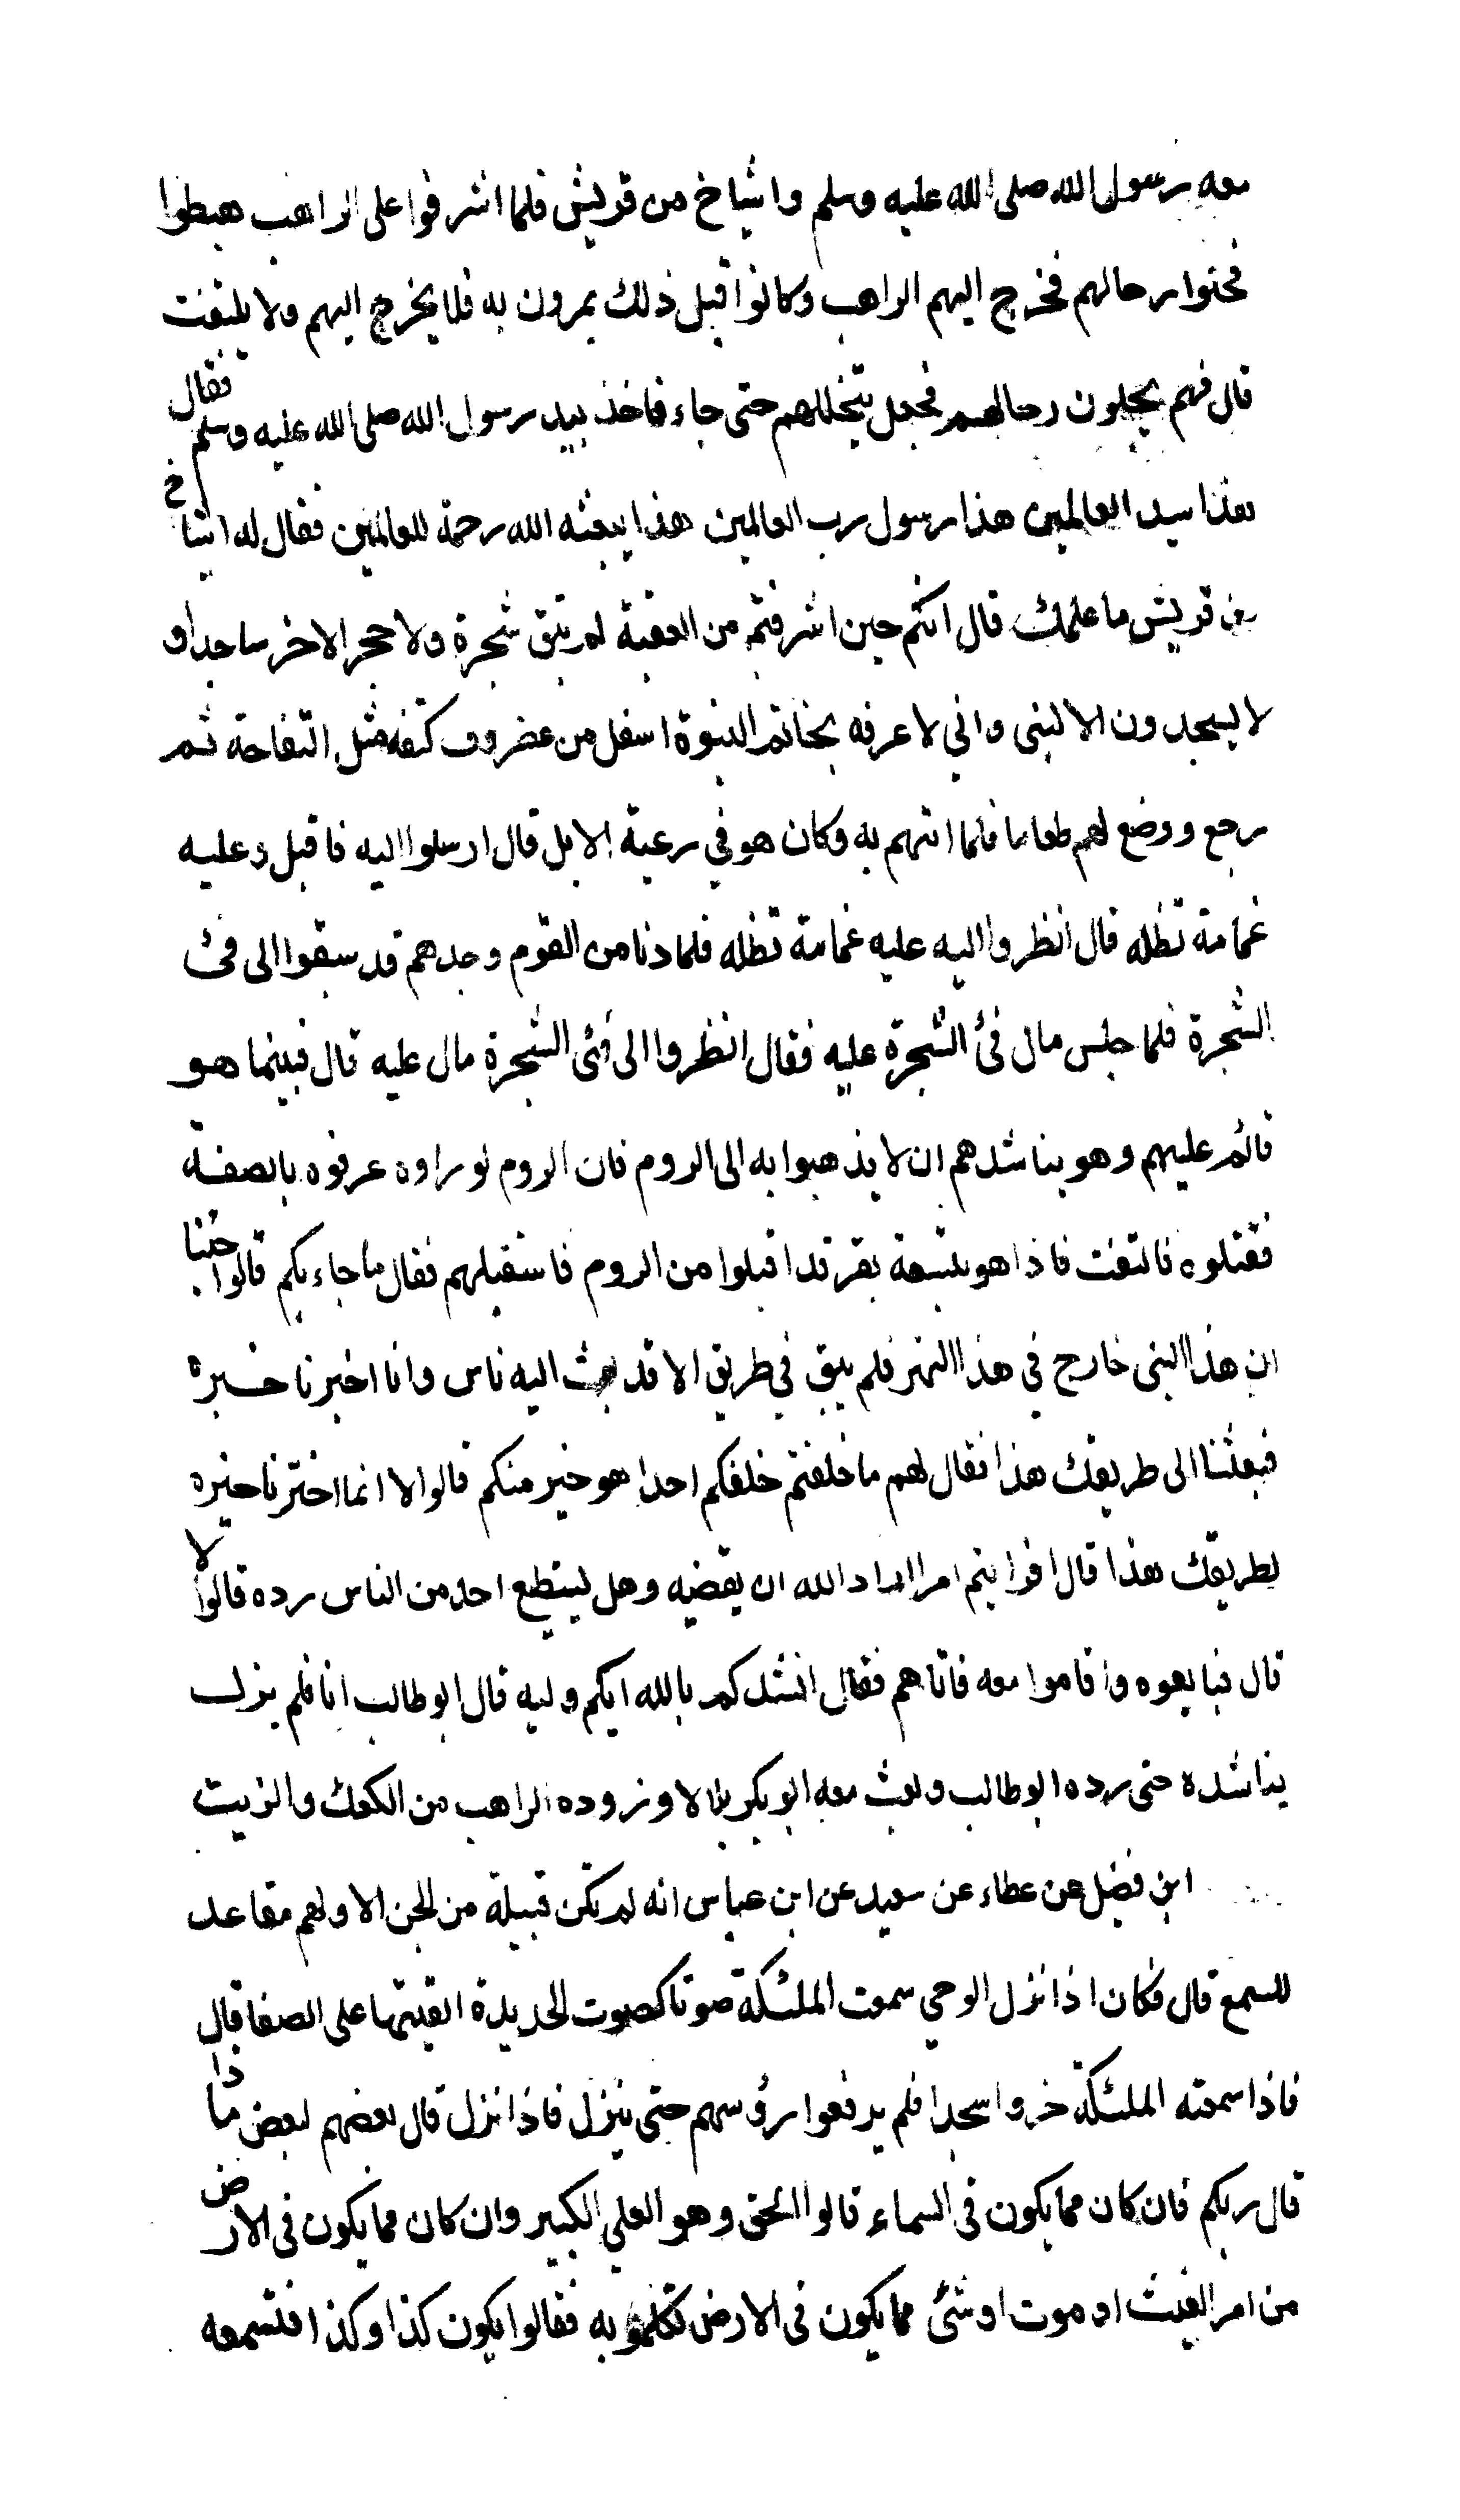 معه رسول الله صلى الله عليه وسلم واشياخ من قريش فلما اشرفوا على الراهب هبطوا
فحلوا رحالهم فخرج اليهم الراهب وكانوا قبل ذلك يمرون به فلا يخرج اليهم ولا يلتفت
قال فهم يحلون رحالهم فجعل يتخللهم حتى جاء فاخذ بيد رسول الله صلى الله عليه وسلم فقال
هذا سيد العالمين هذا رسول رب العالمين هذا يبعثه الله رحمة للعالمين فقال له اشياخ
من قريش ما علمك قال انكم حين اشرفتم من العقبة لم تبق شجرة ولا حجر الا خر ساجدا و
لا يسجدون الا لنبي واني لاعرفه بخاتم النبوة اسفل من غضروف كتفه مثل التفاحة ثم
رجع ووضع لهم طعاما فلما اتهم به وكان هو في رعية الابل قال ارسلوا اليه فاقبل وعليه
غمامة تظله قال انظروا اليه عليه غمامة تظله فلما دنا من القوم وجدهم قد سبقوا الى فئ
الشجرة فلما جلس مال فئ الشجرة عليه فقال انظروا الى فئ الشجرة مال عليه قال فبينما هو
قائم عليهم وهو يناشدهم ان لا يذهبوا به الى الروم فان الروم لو راوه عرفوه بالصفة
فقتلوه فالتفت فاذا هو بتسعة نفر قد اقبلوا من الروم فاستقبلهم فقال ما جاء بكم قالوا جئنا
ان هذا النبي خارج في هذا الشهر فلم يبق في طريق الا قد بعث اليه ناس وانا اخبرنا خبره
فبعثنا الى طريقك هذا فقال لهم ما خلفتم خلفكم احدا هو خير منكم قالوا لا انما اخترنا خيره
لطريقك هذا قال افرايتم امرا اراد الله ان يقضيه وهل يستطيع احد من الناس رده قالوا لا
قال فبايعوه واقاموا معه فاتاهم فقال انشدكم بالله ايكم وليه قال ابو طالب انا فلم يزل
يناشده حتى رده ابو طالب وبعث معه ابو بكر بلالا وزوده الراهب من الكعك والزيت
ابن فضيل عن عطاء عن سعيد عن ابن عباس انه لم تكن قبيلة من الجن الا ولهم مقاعد
للسمع قال فكان اذا نزل الوحي سمعت الملئكة صوتا كصوت الحديدة القيتها على الصفا قال
فاذا سمعته الملئكة خروا سجدا فلم يرفعوا رؤسهم حتى ينزل فاذا نزل قال بعضهم لبعض ماذا
قال ربكم فان كان مما يكون في السماء قالوا الحق وهو العلي الكبير وان كان مما يكون في الارض
من امر الغيث او موت او شئ مما يكون في الارض تكلموا به فقالوا يكون كذا وكذا فتسمعه